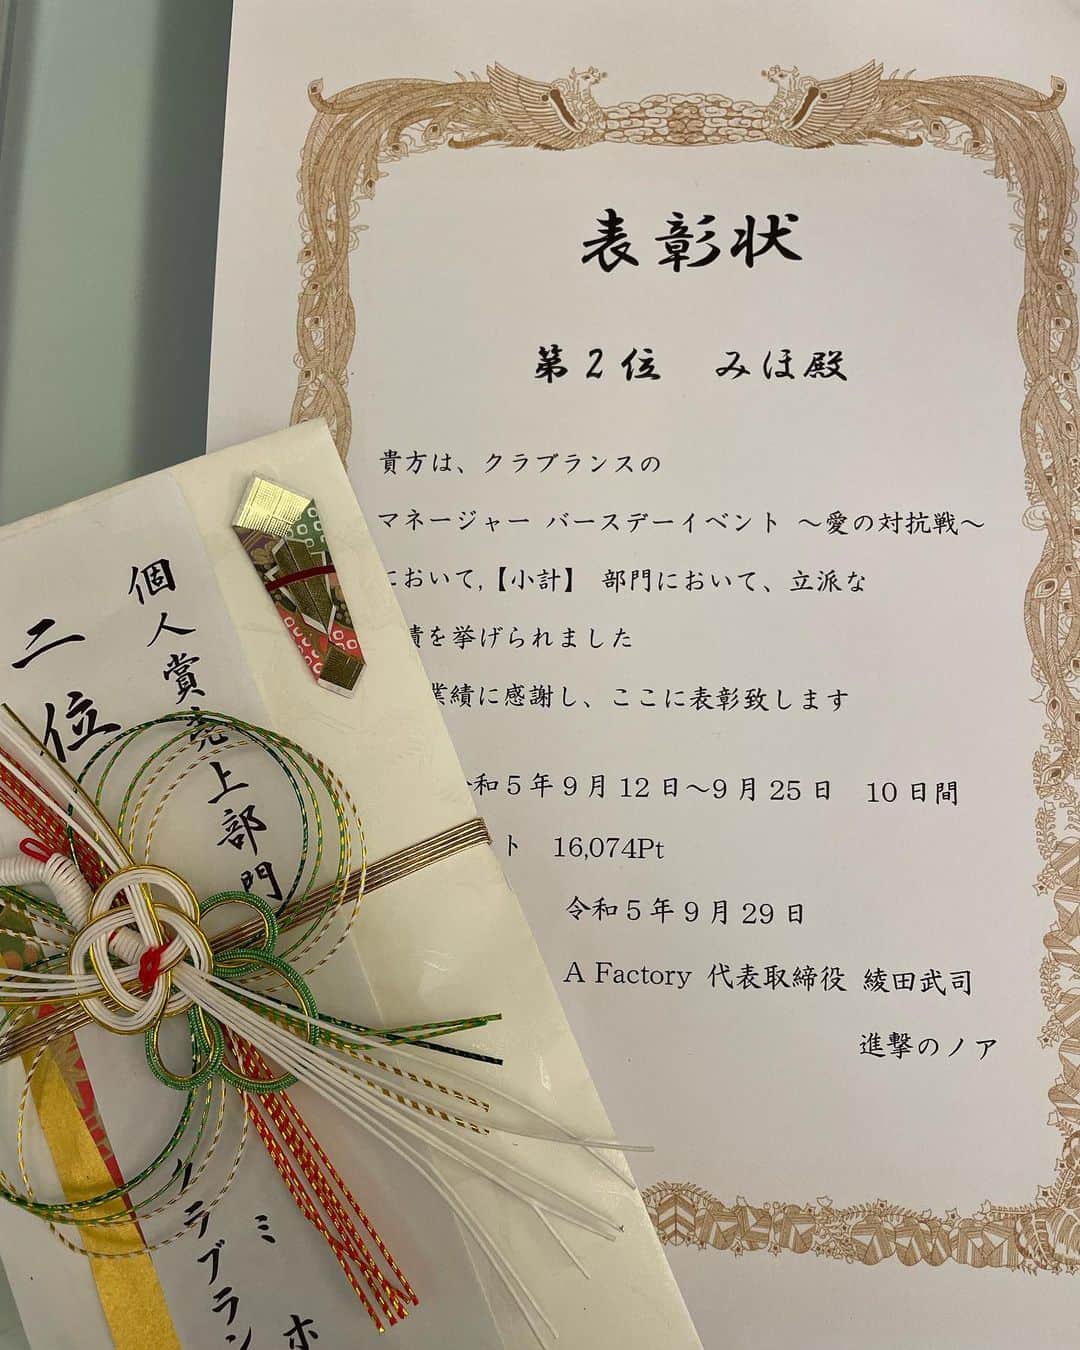 表彰状
第2位 みほ殿
貴方は、クラブランスの
マネージャー バースデーイベント ～愛の対抗戦～
において,【小計】 部門において、立派な
績を挙げられました
業績に感謝し、ここに表彰致します
和5年9月12日～9月25日 10日間
ト 16,074Pt
令和5年9月29日
A Factory 代表取締役 綾田武司
進撃のノア
個人賞売上部門
二位
クラブラン
ミホ